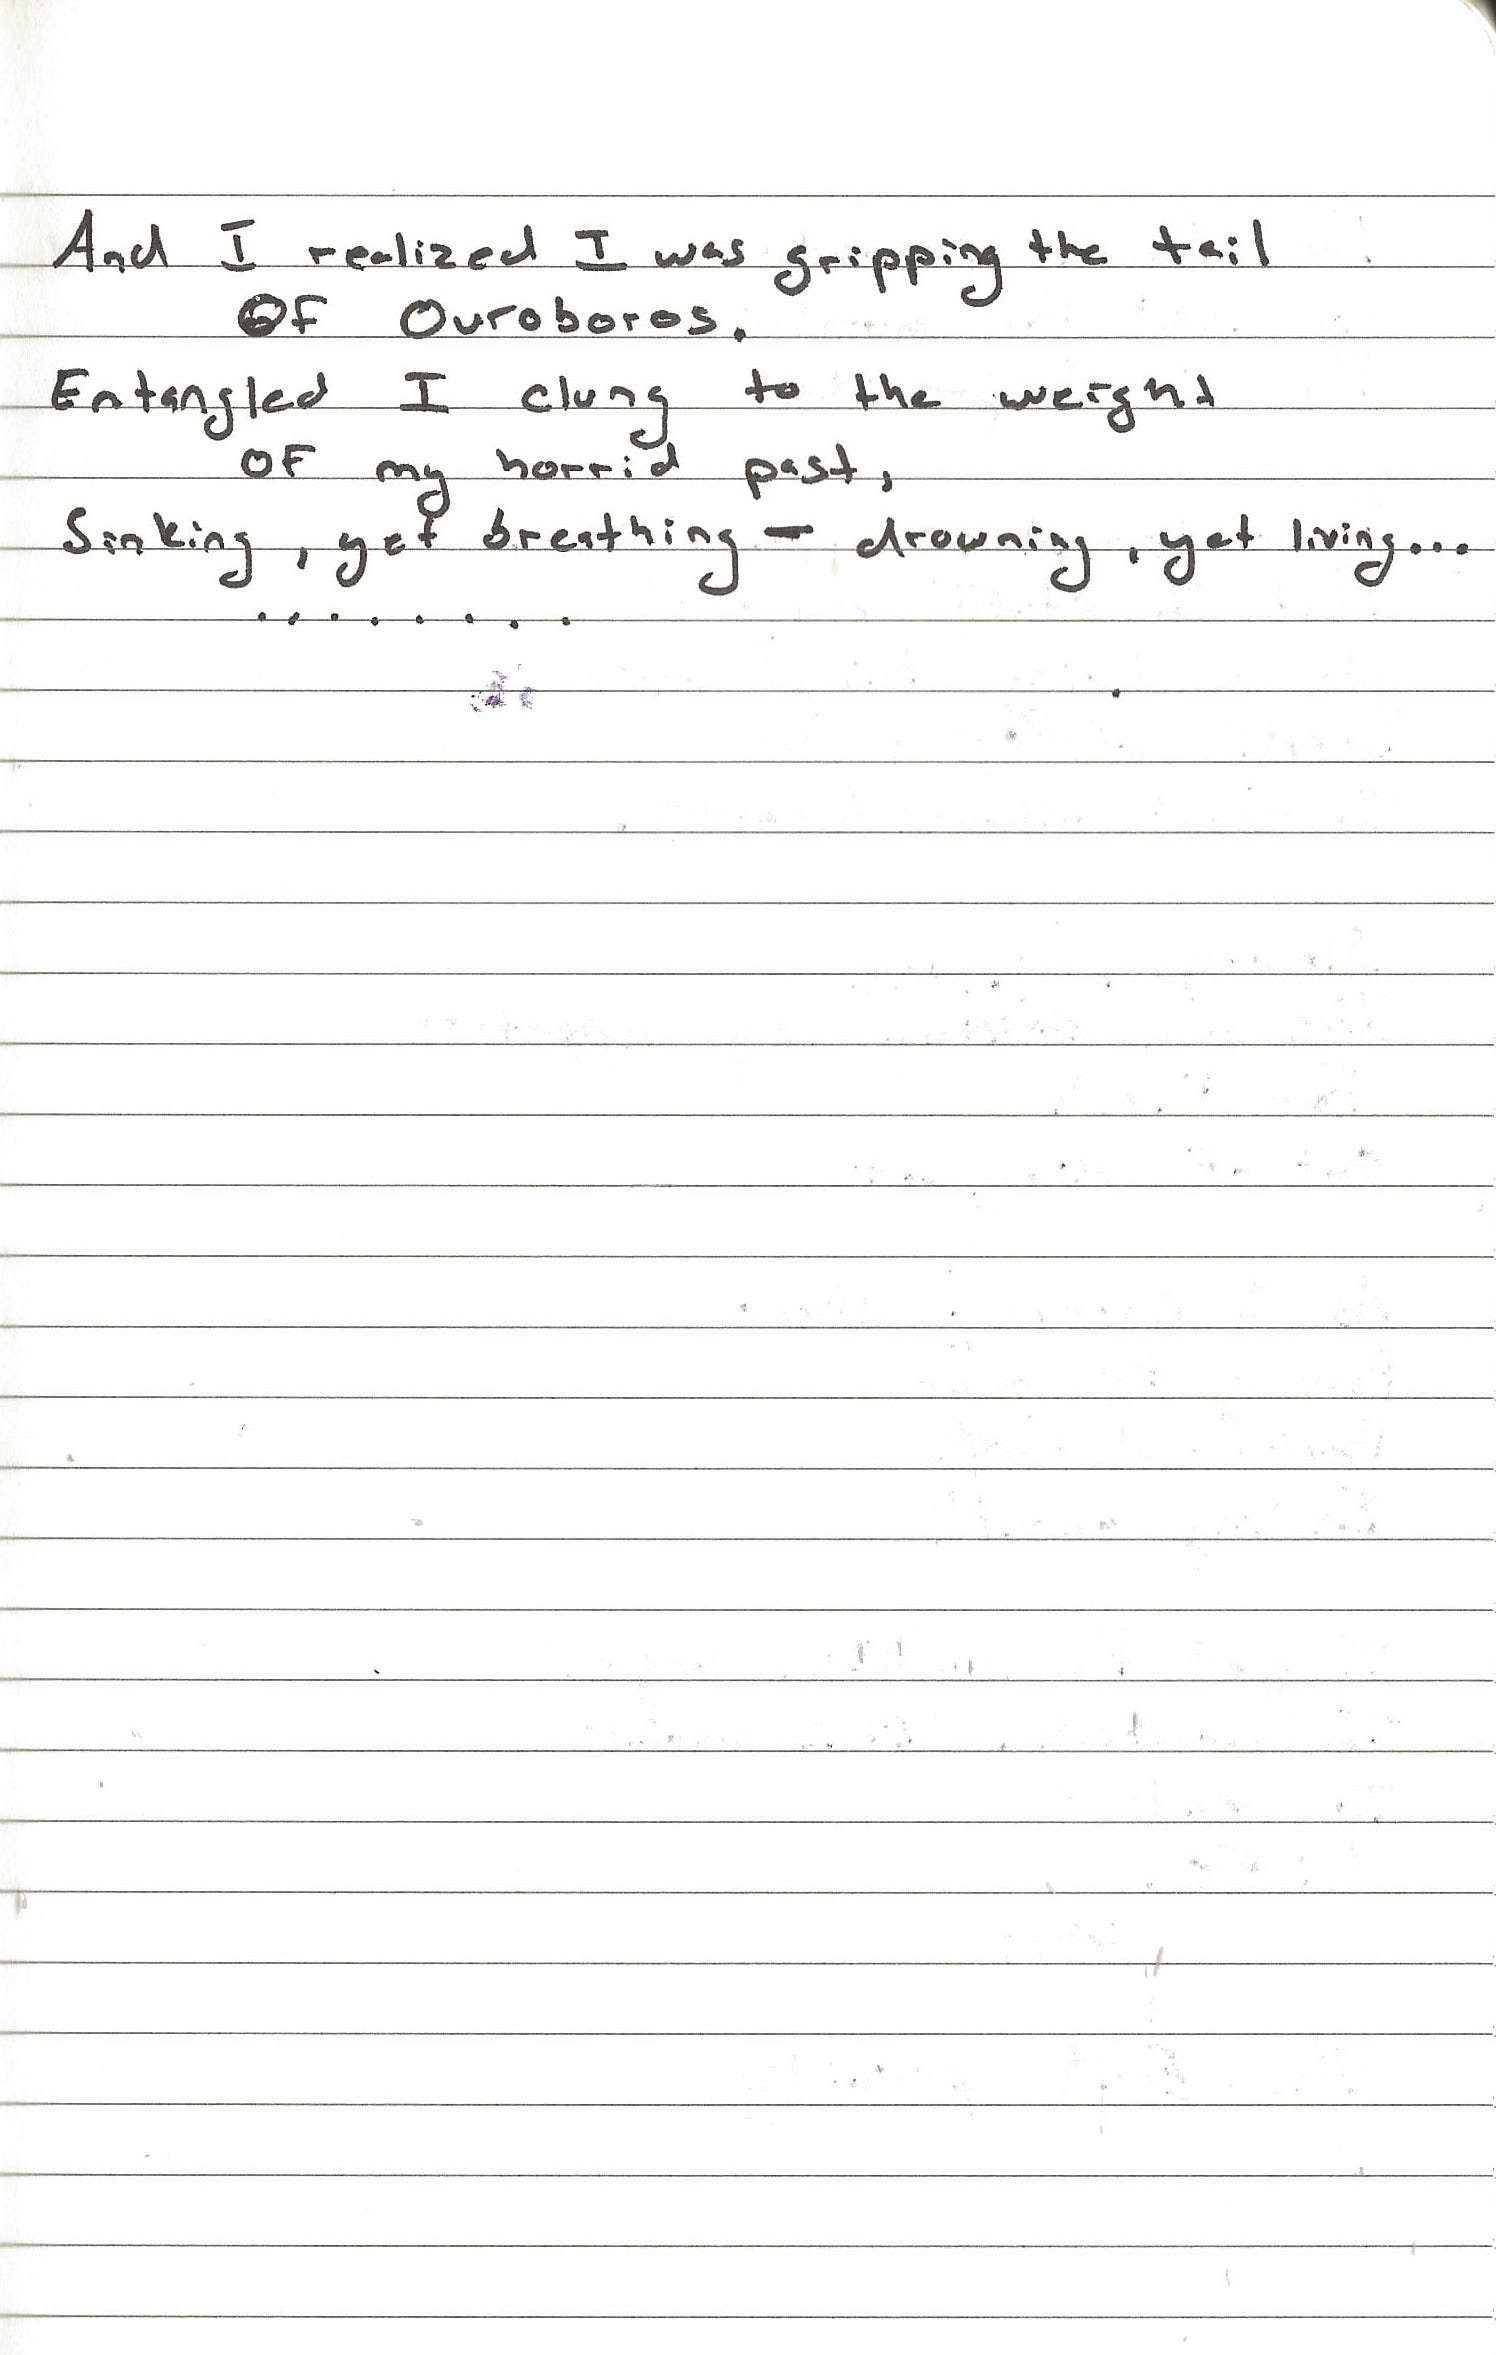 And I realized I was gripping the tail
OF Ouroboros.
Entangled I clung to the weight
OF my horrid past,
Sinking, yet breathing - drowning, yet living...
........